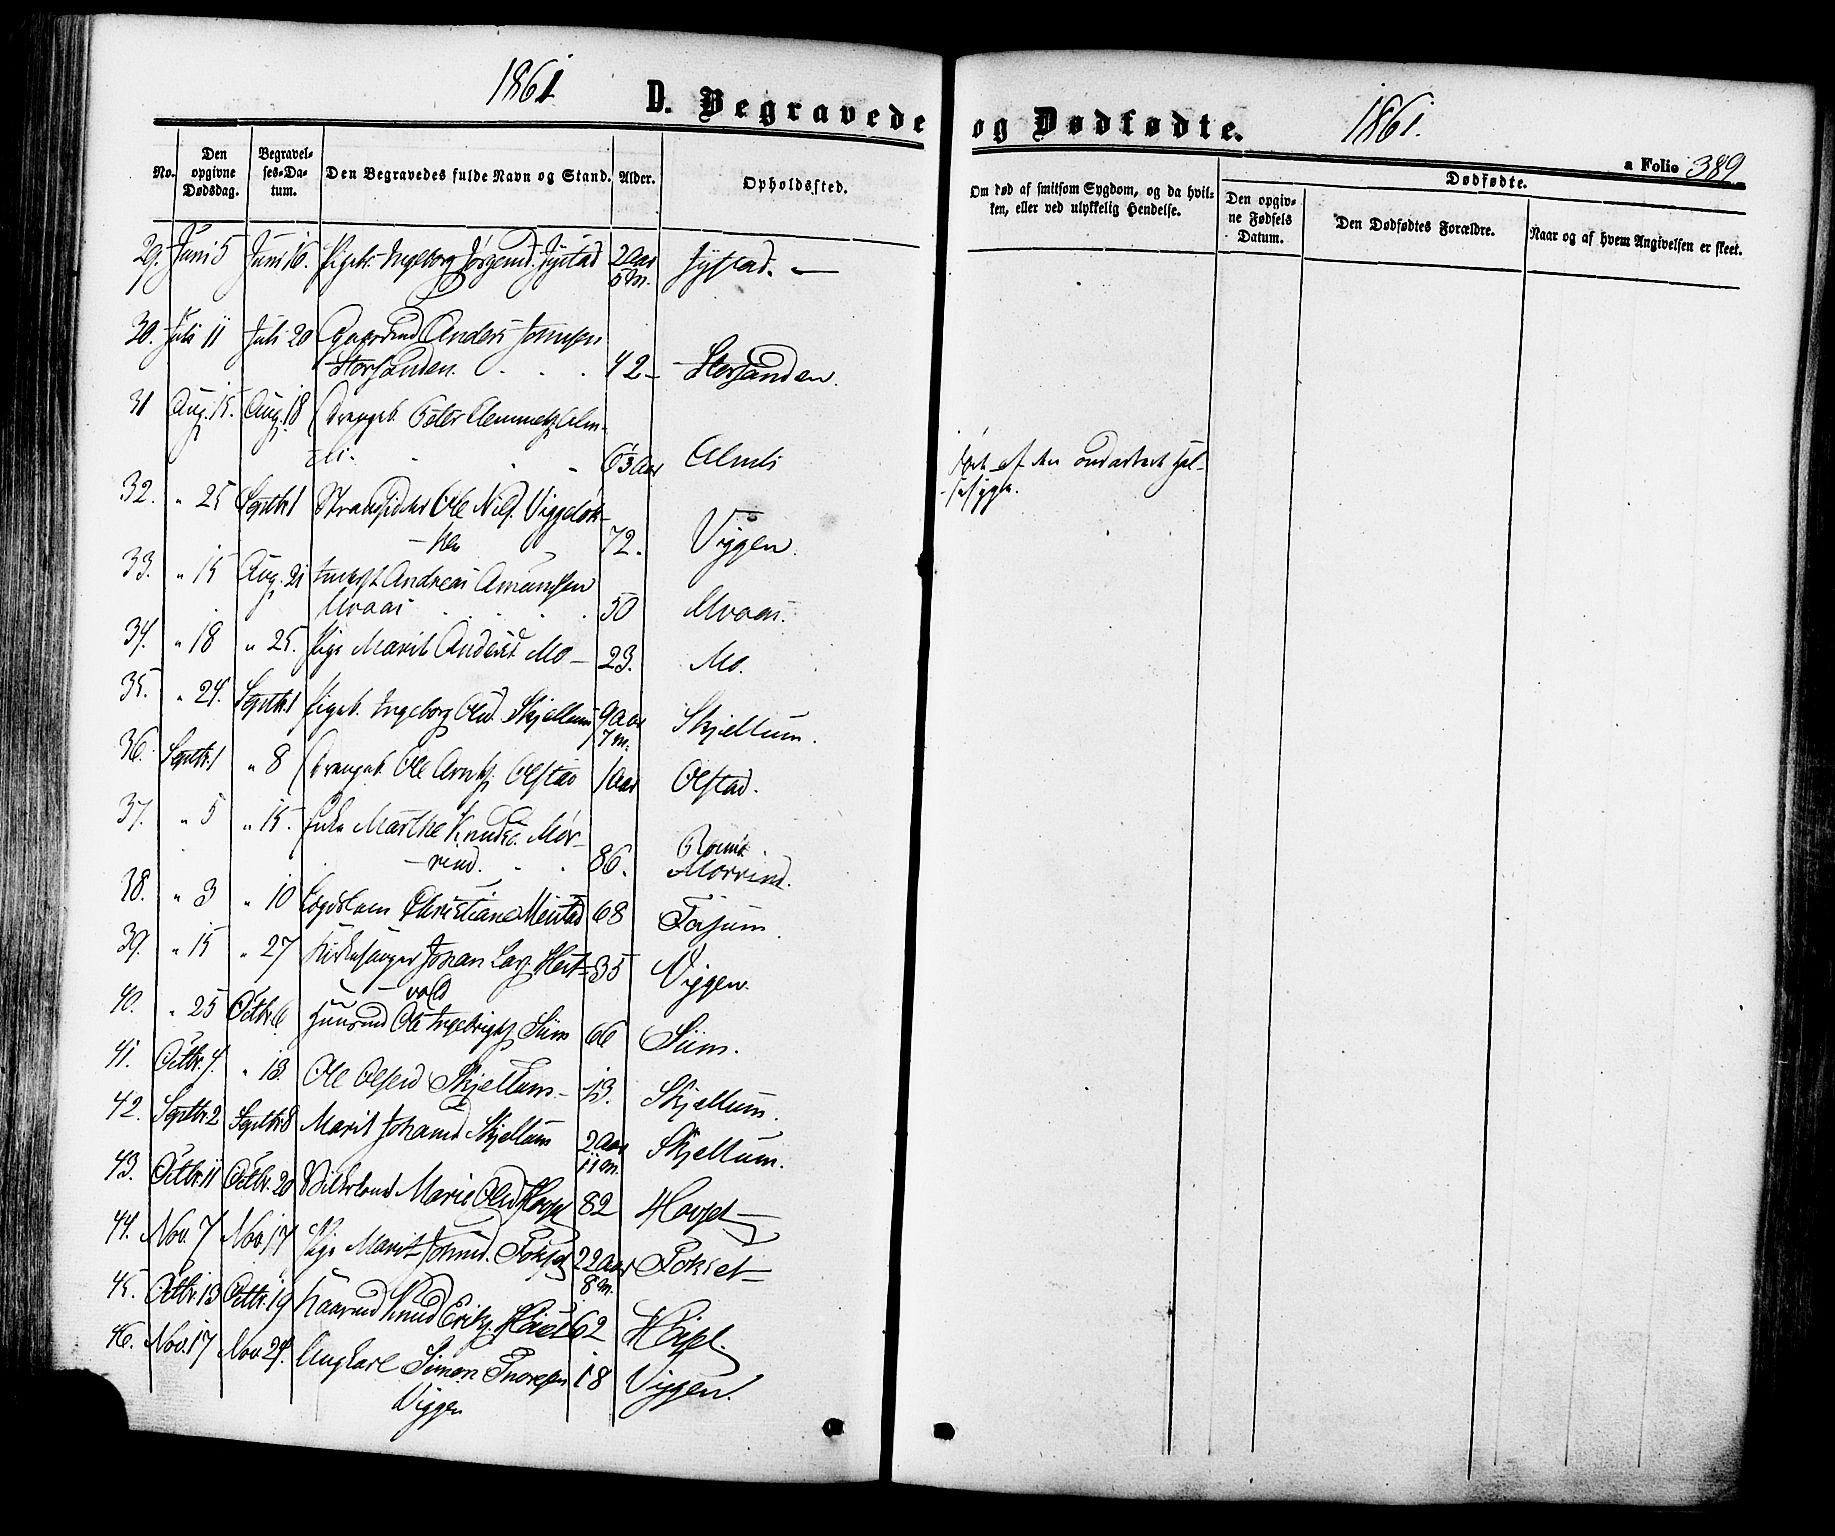 1861
D. Begravede og Dødfødte.
1861.
a Folio 389
No.
Den opgivne Dødsdag.
Begravelses-Datum.
Den Begravedes fulde Navn og Stand.
Alder.
Opholdssted.
Om død af smitsom Sygdom, og da hvilken, eller ved ulykkelig Hendelse.
Dødfødte.
Den opgivne Fødsels Datum.
Den Dødfødtes Forældre.
Naar og af hvem Angivelsen er skeet.
29. Juni 5 Juni 16. Pigeb. Ingeborg Jørgensd. Jystad 2 Aar Jystad. —
5 M.
30. Juli 11 Juli 20 Gaardmd Anders
Storsanden. 42 – Storsanden.
31 Aug. 15. Aug. 18 Drengeb. Peter Clemmetz Alm-
li. Aar Almli
død af den ondartede Hal-
sesyge.
32. " 25 Septbr. 1 Strandsidder Ole Nils. Viggeløk-
ken 72. Viggen.
33. " 15 Aug. 21 Andreas Amundsen
Mvaas 50 Mvaas.
34. " 18 " 25. Pige Marit Andersd. Mo – 23. Mo.
35. " 24. Septbr. 1 Pigeb. Ingeborg Olsd. Skjellum 9 Aar Skjellum.
7 M.
36. Septbr. 1 " 8 Drengeb. Ole Arntz. Olstad 1 Aar Olstad.
37. " 5 " 15. Enke Marthe Knudsd. Mør-
rind. 86. Mørrind.
38. " 3 " 10 Christiane 68
39. " 15 " 27 Kirkesanger Johan Lars. Heit- 35 Viggen.
vold
40. " 25 Octbr. 6 Huusmd Ole Ingebrigtz. Siim 66 Siim.
41. Octbr. 4. " 13. Ole Olsen Skjellum – 13. Skjellum.
42. Septbr. 2 Septbr. 8 Marit Johansd Skjellum 2 Aar Skjellum.
11 M.
43. Octbr. 11 Octbr. 20 Marie Olsd 82
44. Nov. 7 Nov. 17 Pige Marit Johnsd. 22 Aar
8 M.
45. Octbr. 13 Octbr. 19 Kaarmd Knud Eriks. 62
46. Nov. 17 Nov. 24. Ungkarl Simon Thoresen 18 Viggen.
Viggen